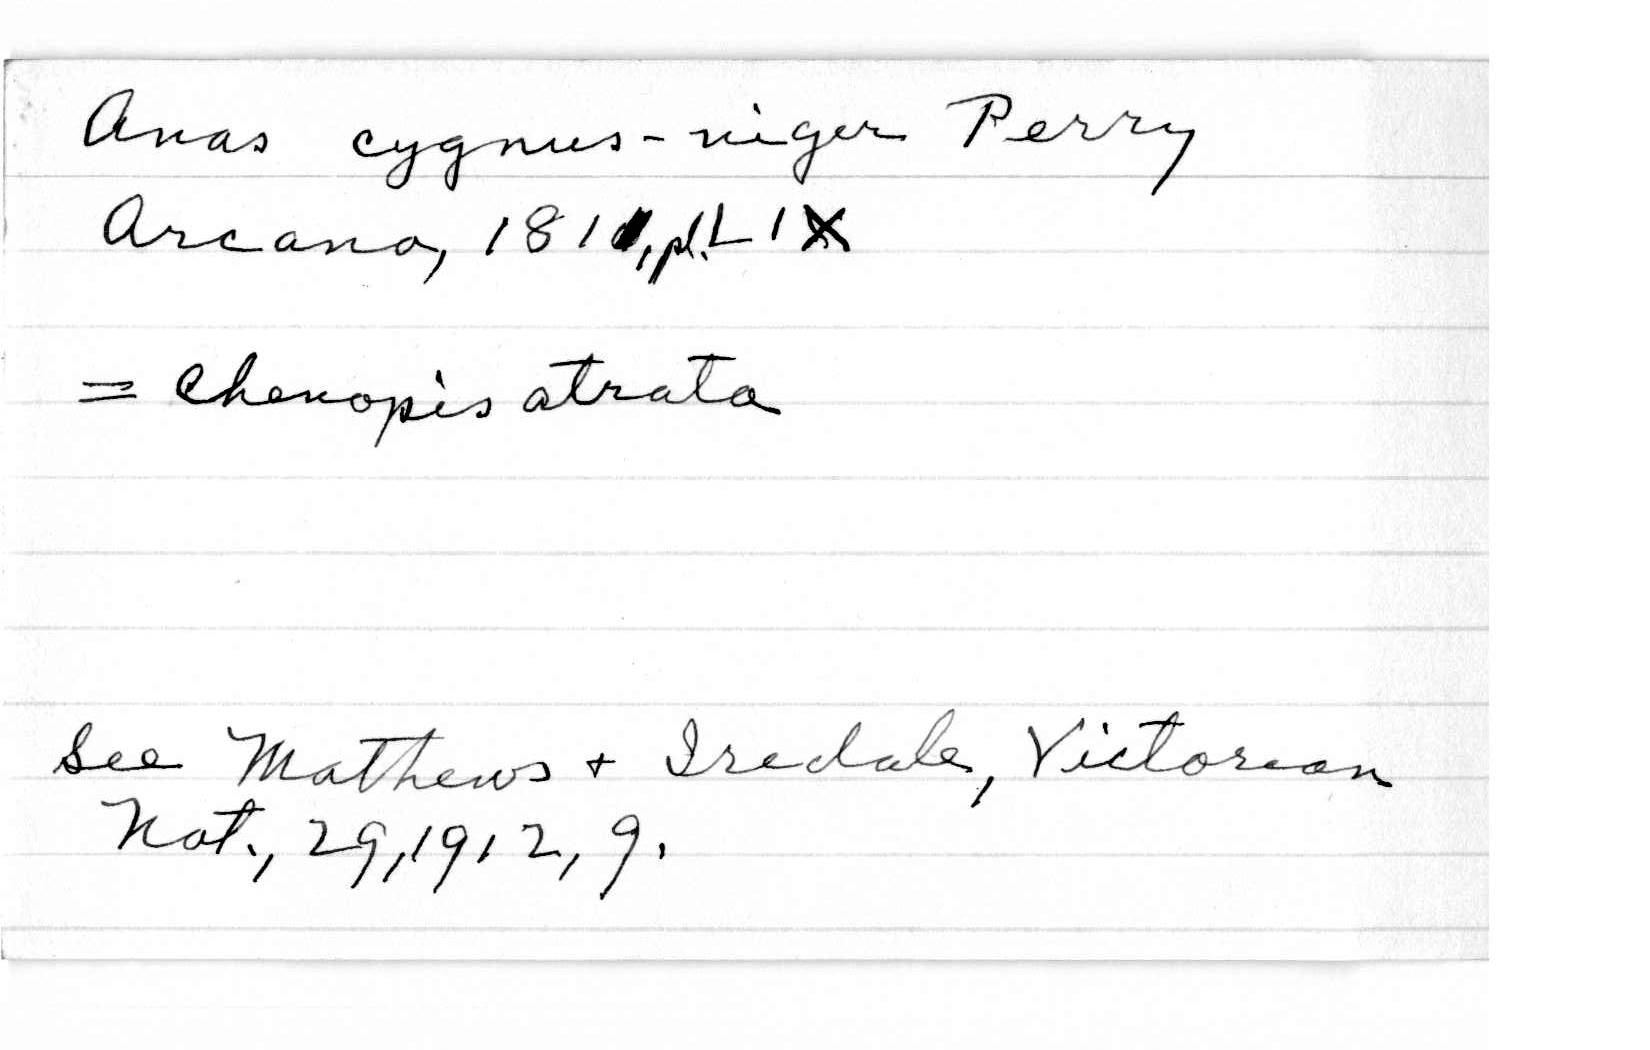 Anas cygnus-niger Perry
Arcana, 1811, pl. LIX
= Chenopis atrata
See Mathews + Iredale, Victorian
Nat., 29, 1912, 9.